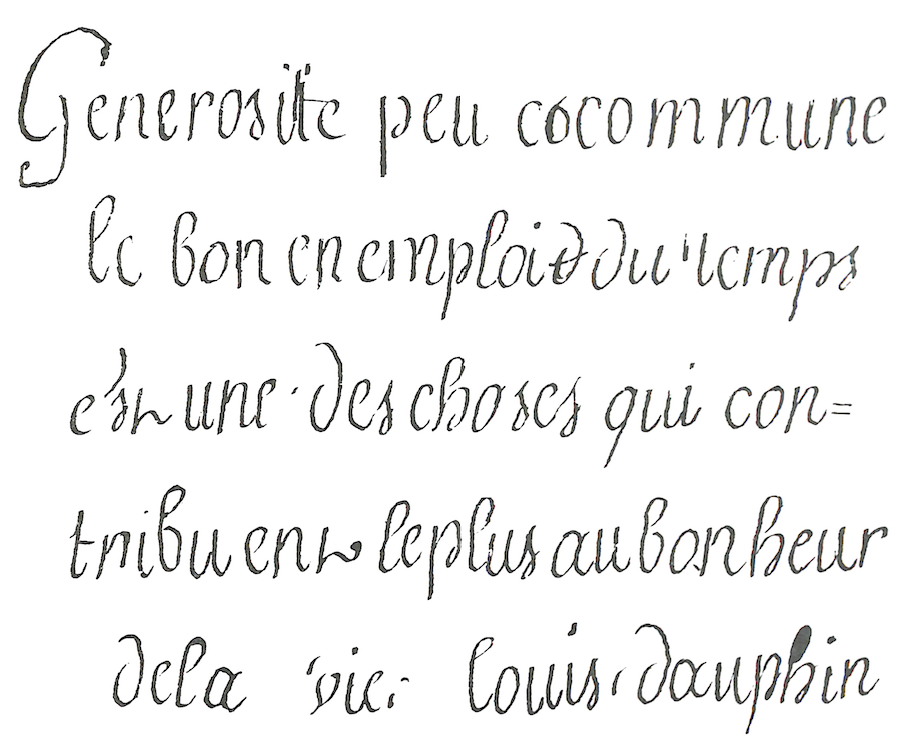 Generosité peu cocommune
le bon en emploid du temps
est une des choses qui con=
tribuent le plus au bonheur
de la vie. louis. dauphin